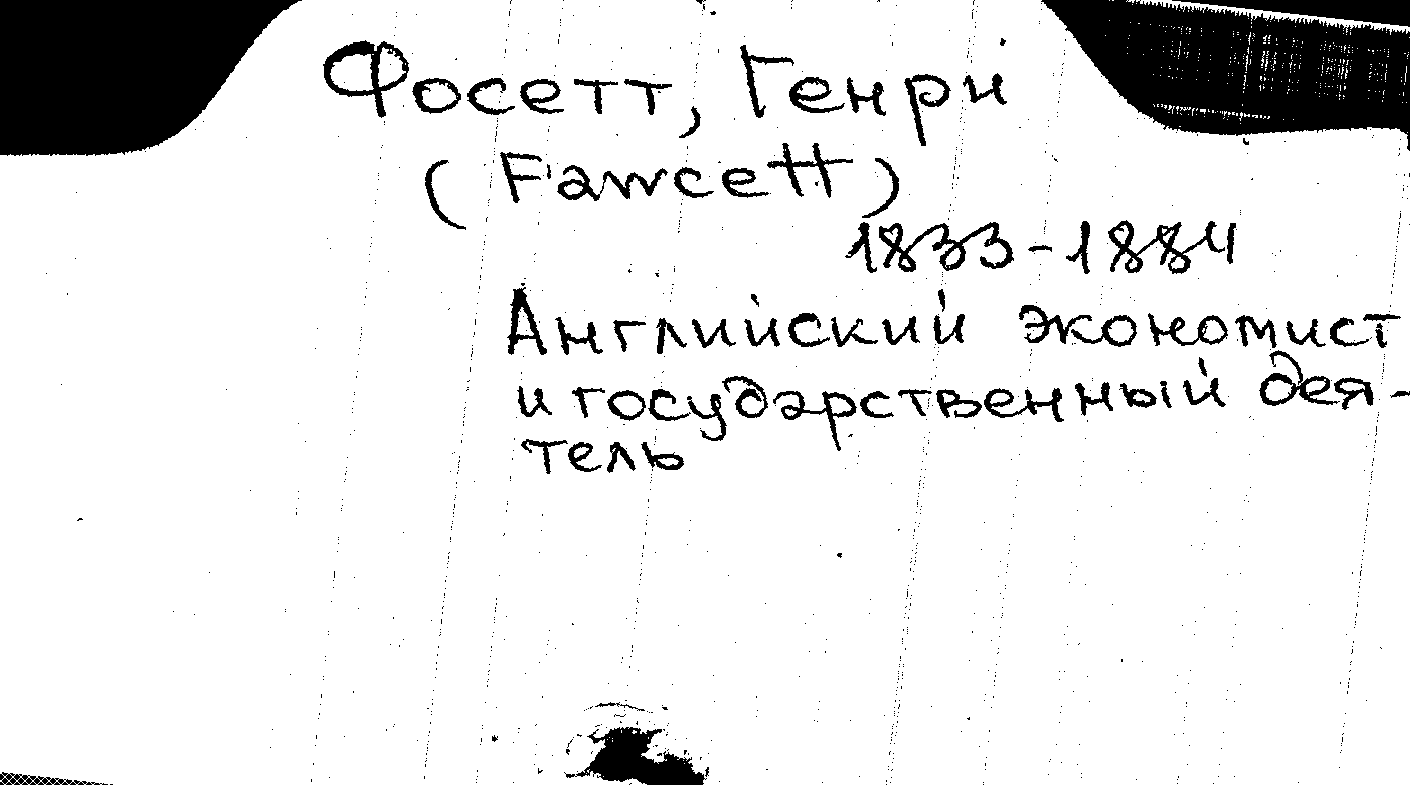 Фосетт, Генри
(Fawcett)
1833-1884
Английский экономист
и государственный дея-
тель